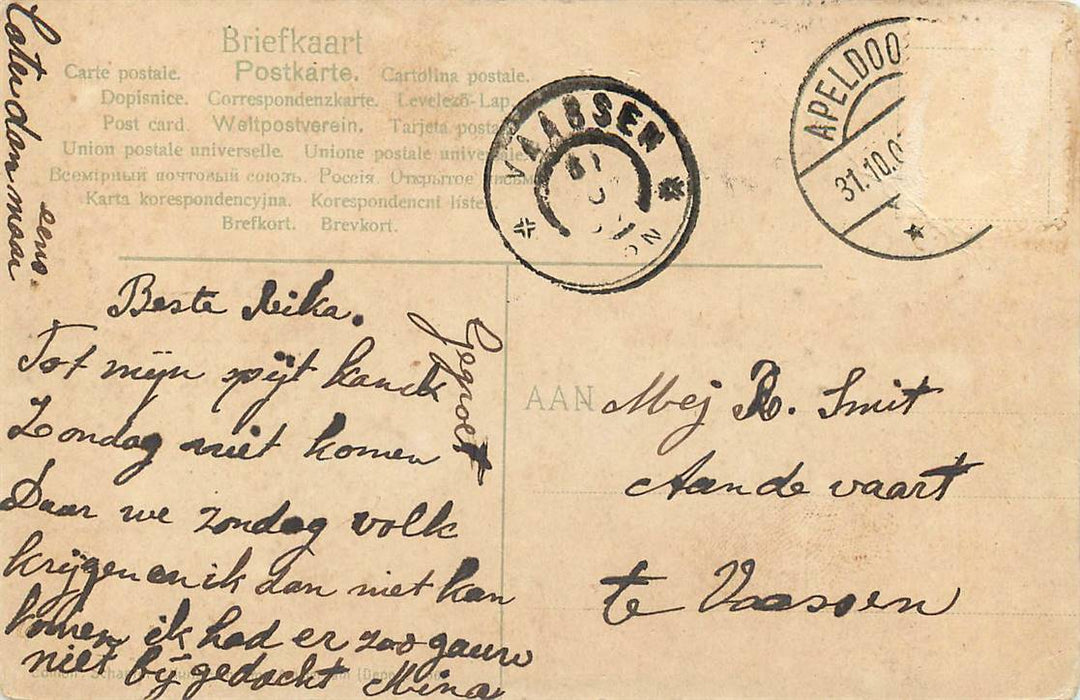 Briefkaart
Carte postale. Postkarte. Cartolina postale.
Dopisnice. Correspondenzkarte. Levelező-Lap.
Post card. Weltpostverein. Tarjeta
Union postale universelle. Unione postale universale.
Всемірный почтовый союзъ. Россія. Открытое письмо
Karta korespondencyjna. Korespondencni listek
Brefkort. Brevkort.
VAASSEN
APELDOO
31.10.0
Later dan maar
eens.
Beste Rika.
Tot mijn spijt kan ik
Zondag niet komen
Daar we zondag volk
krijgen en ik dan niet kan
komen ik had er zoo gauw
niet bij gedacht Mina
Gegroet
AAN Mej R. Smit
Aan de vaart
te Vaassen